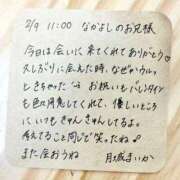 2/9 11:00 なかよしのお兄様
今日は会いに来てくれてありがとう♡
久しぶりに会えた時、なぜかウルッ
ときちゃった お祝いもバレンタイン
も色々用意してくれて、優しいところ
に、いつもきゅんきゅんしてるよ。
考えてること同じで笑ったね♪
また会おうね 月城まいか